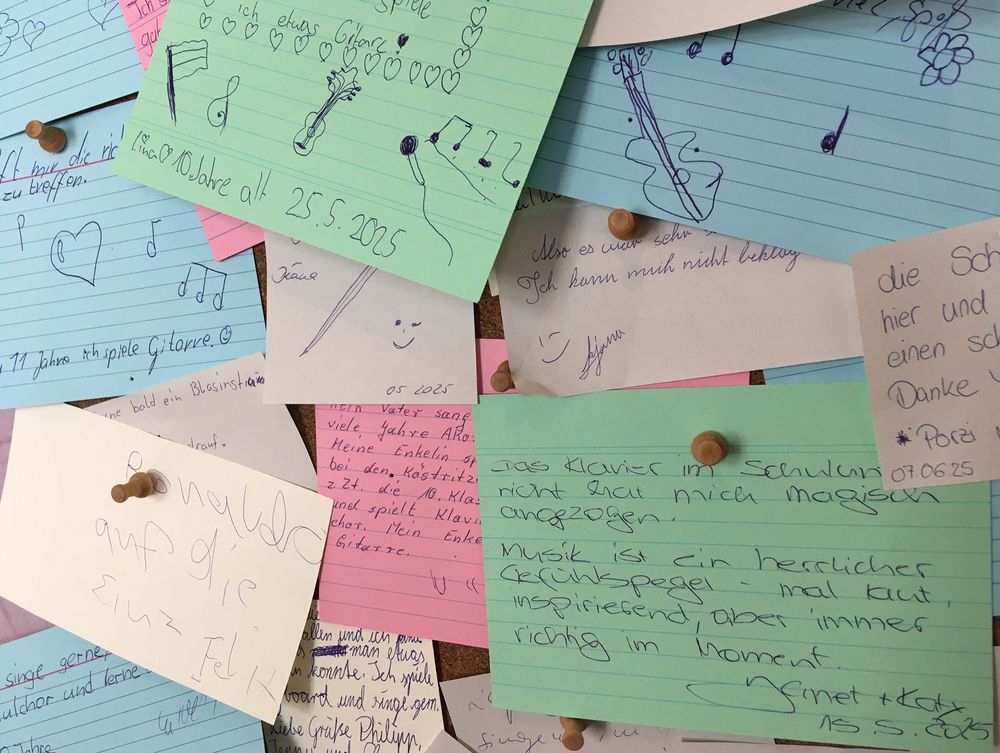 Ich s
gut
spiele
ich etwas Gitarre!
Lina 10 Jahre alt 25.5.2025
viel Spaß
zu treffen.
11 Jahre ich spiele Gitarre.
05 2025
Also es war sehr
Ich kann mich nicht beklag
die Sch
hier und
einen sch
Danke
Porzi
07.06.25
bald ein Blasinstru
drauf.
Ronaldo
auf die
Einz
Felix
mein Vater sang
viele Jahre
Meine Enkelin sp
bei den Köstritz
z.Zt. die 10. Kla
und spielt Klavi
chor. Mein Enke
Gitarre.
Das Klavier im Schulun
richt hat mich magisch
angezogen.
Musik ist ein herrlicher
Gefühlspegel - mal laut,
inspirierend, aber immer
richtig im Moment.
+ Katy
15.5.2025
singe gerne,
ulchor und lerne
Jahre
allen und ich
man etwas
n konnte. Ich spiele
board und singe gern.
Liebe Grüße Philipp,